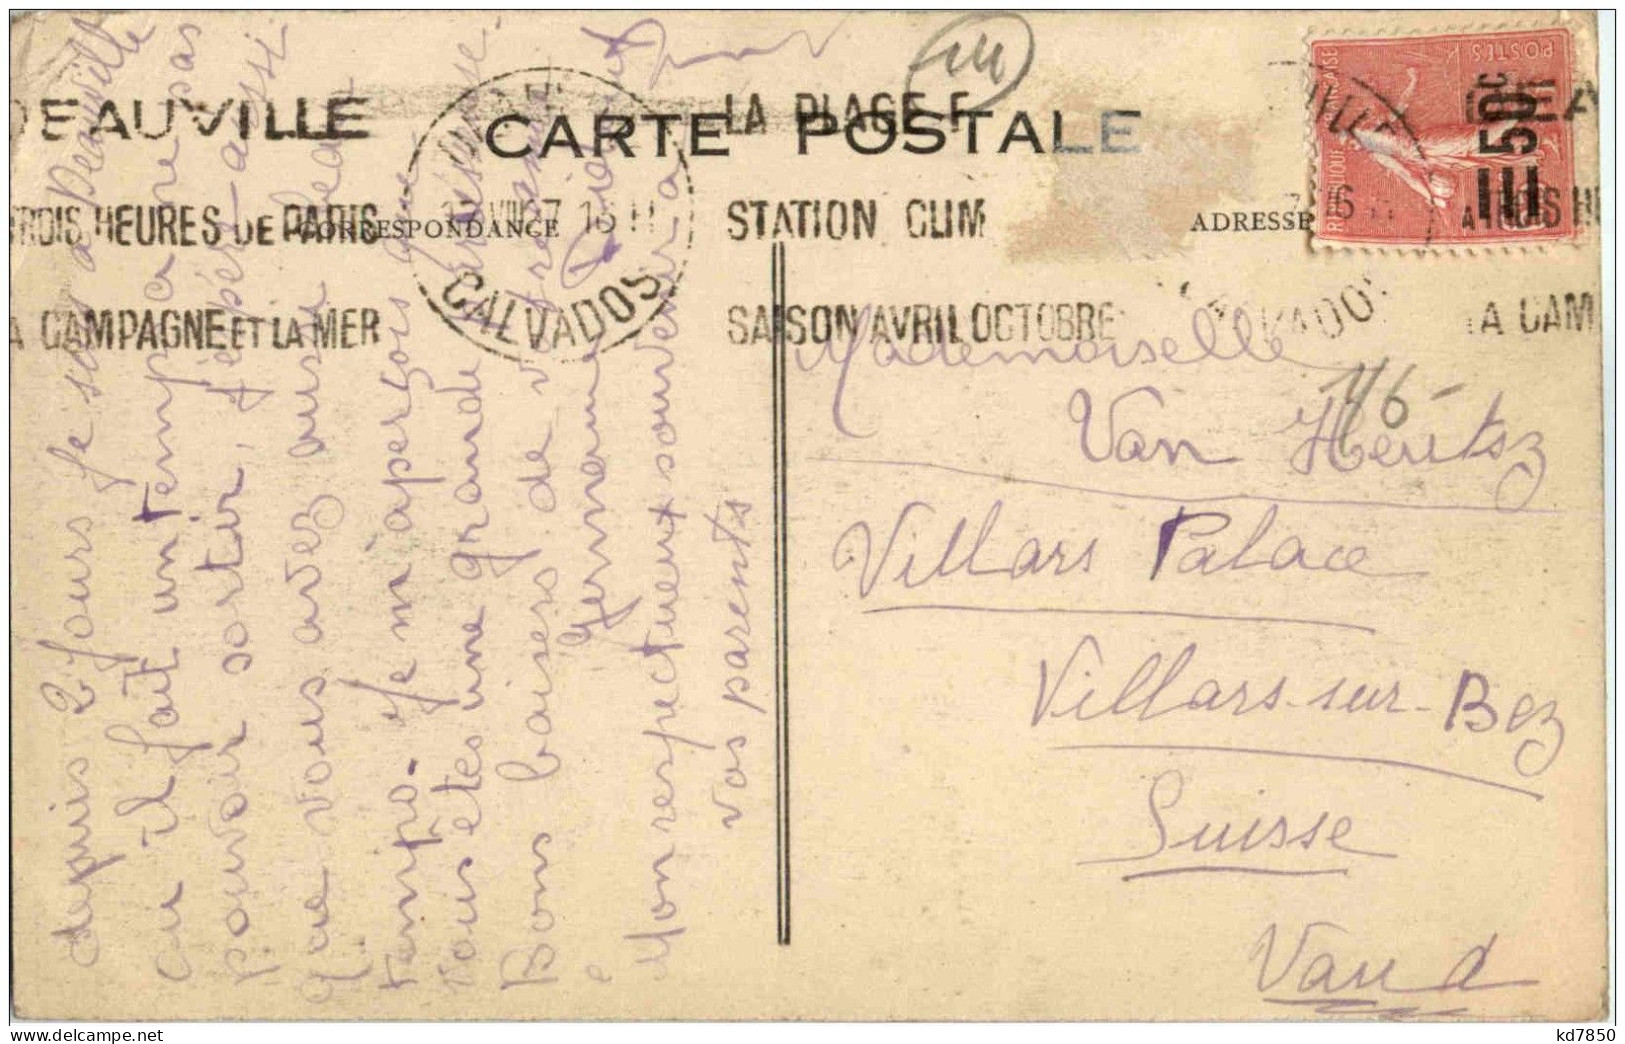 DEAUVILLE
LA PLAGE F
CARTE POSTALE
TROIS HEURES DE PARIS
CORRESPONDANCE
STATION CLIM
ADRESSE
CALVADOS
LA CAMPAGNE ET LA MER
SAISON AVRIL OCTOBRE
A TROIS H
LA CAM
POSTES
50c
depuis 2 Jours je suis à Deauville
où il fait un temps a ne pas
pouvoir sortir, j'espère aussi
que vous avez aussi beau
temps. Je m'aperçois que
vous êtes une grande paresseuse.
Bons baisers de votre amie
Germaine
Mon respectueux souvenir à
vos parents
Mademoiselle
Van Heutsz
Villars Palace
Villars-sur-Bez
Suisse
Vaud
116-
kd7850